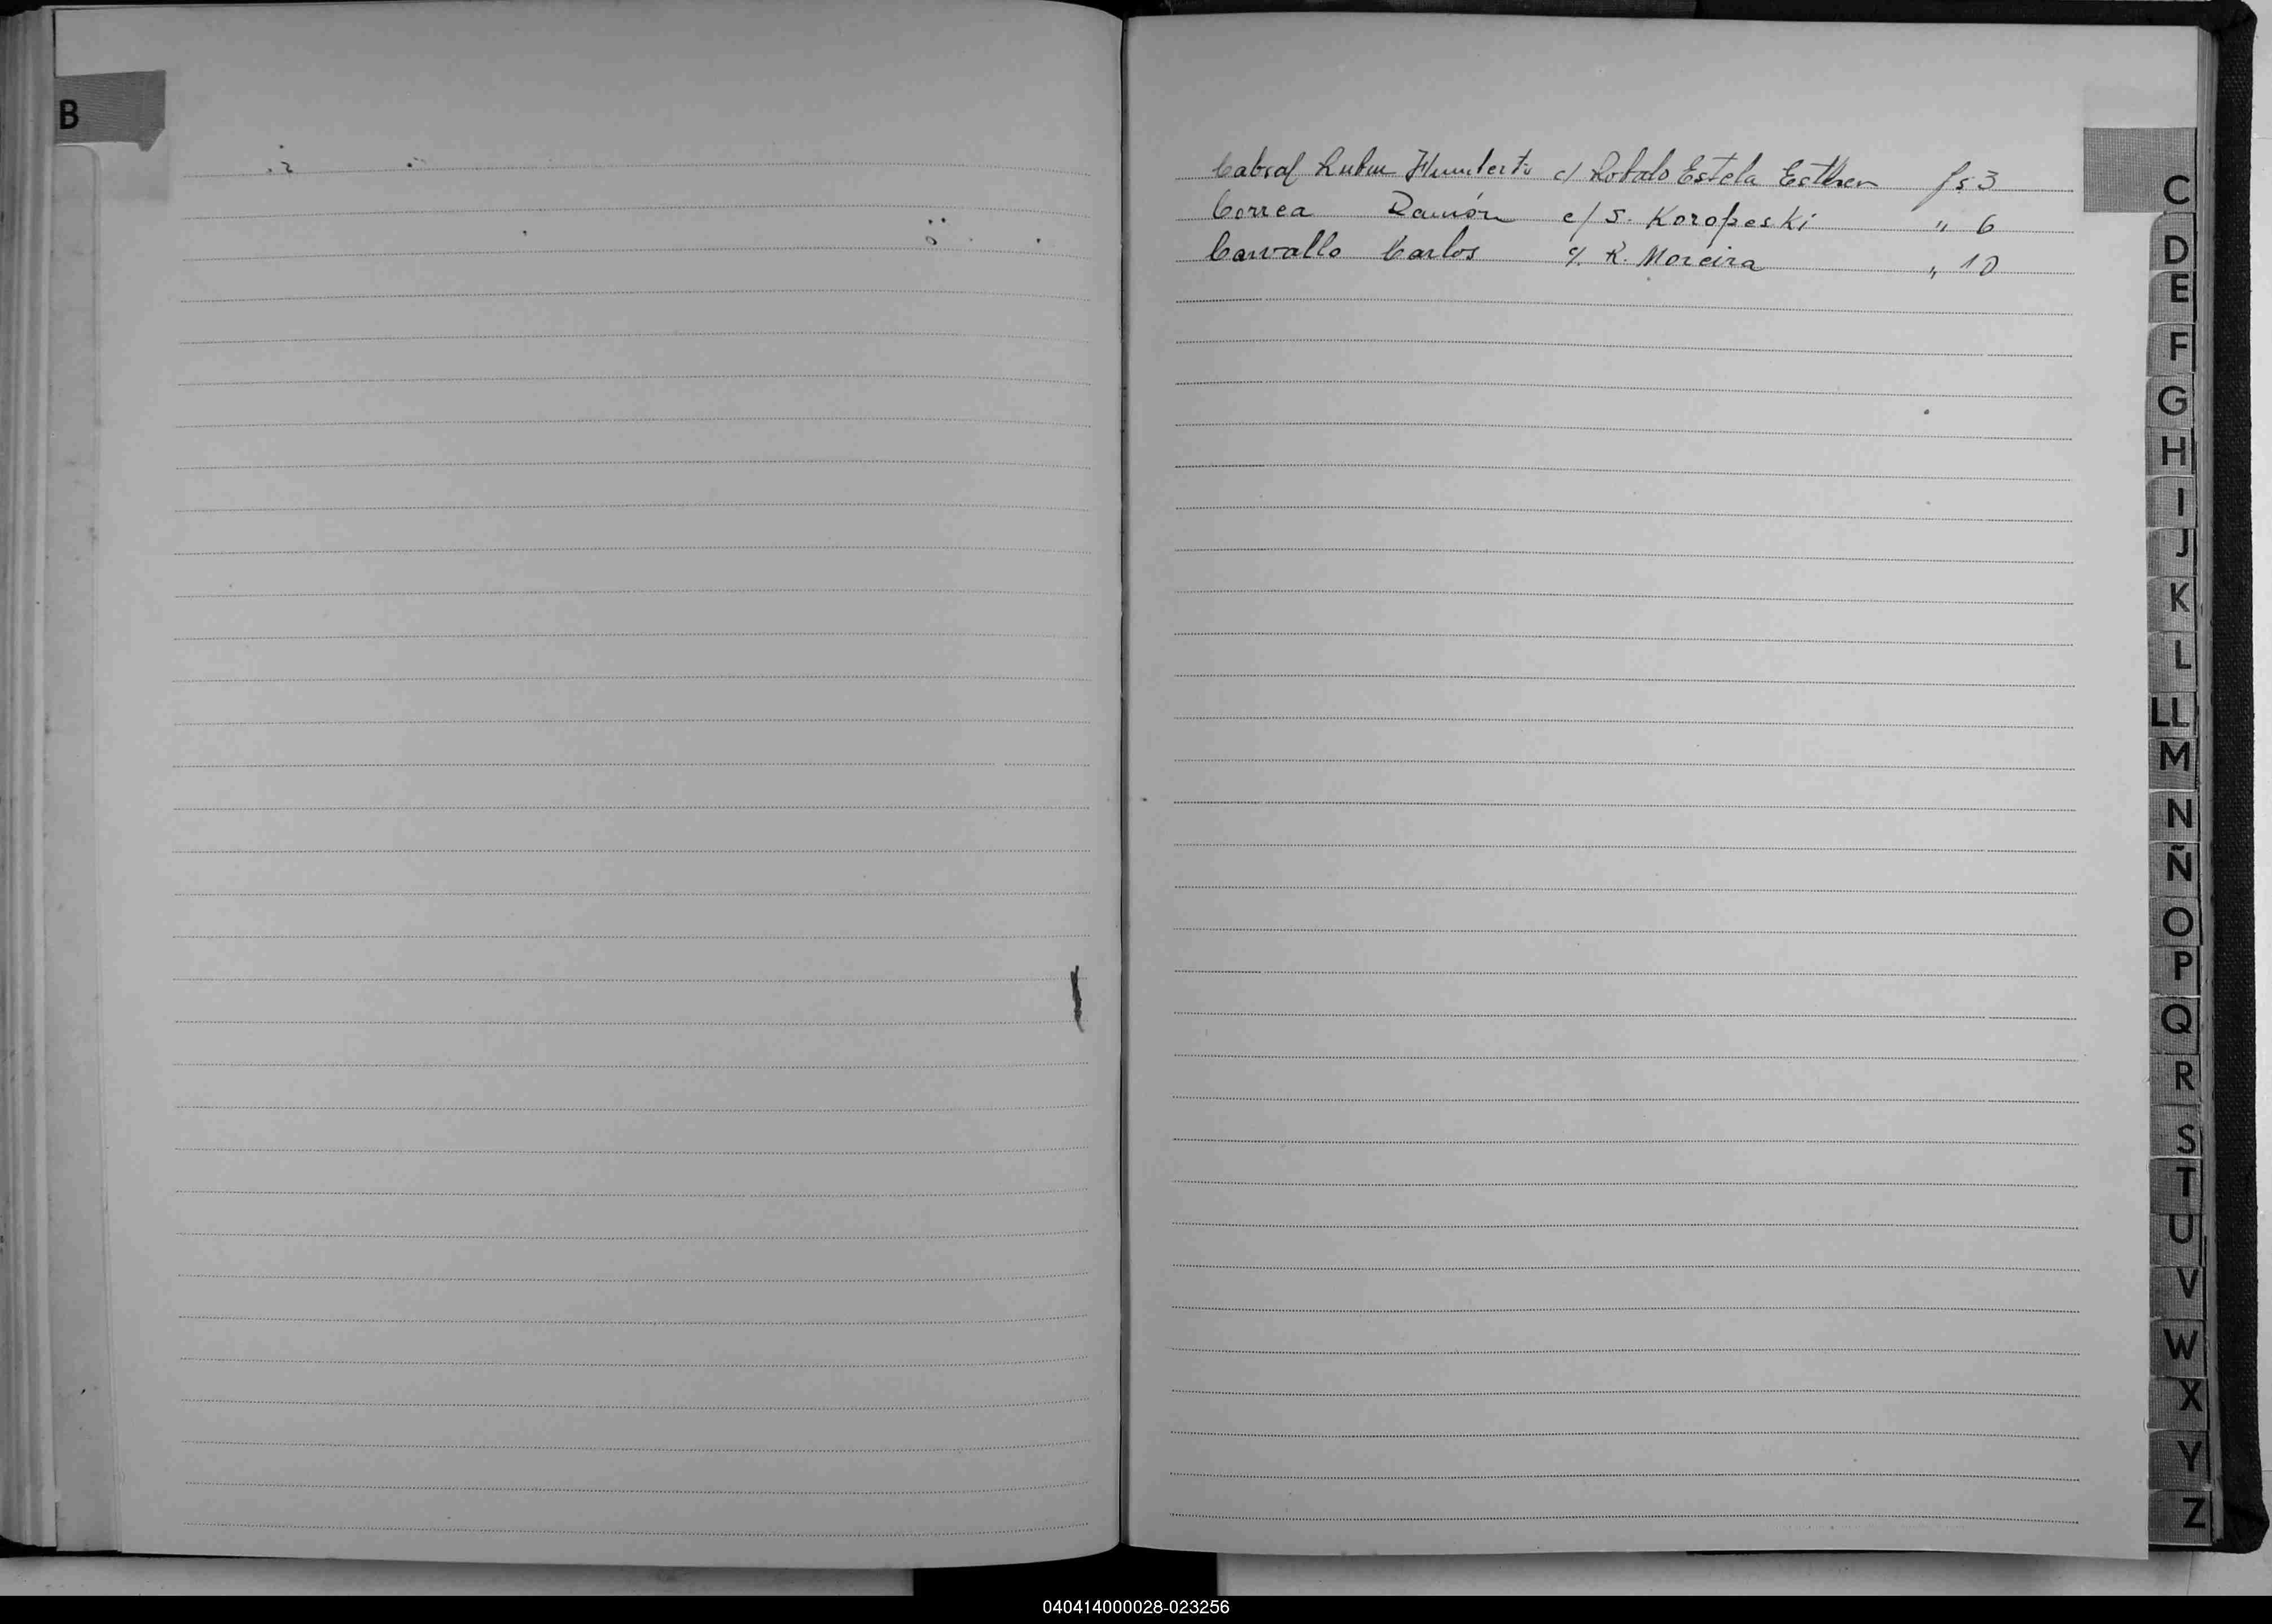 B
Cabral Ruben Humberto c/ Robalo Estela Esther fs 3
Correa Ramón c/ S. Koropeski " 6
Carvallo Carlos c/. R. Moreira " 10
C
D
E
F
G
H
I
J
K
L
LL
M
N
Ñ
O
P
Q
R
S
T
U
V
W
X
Y
Z
040414000028-023256